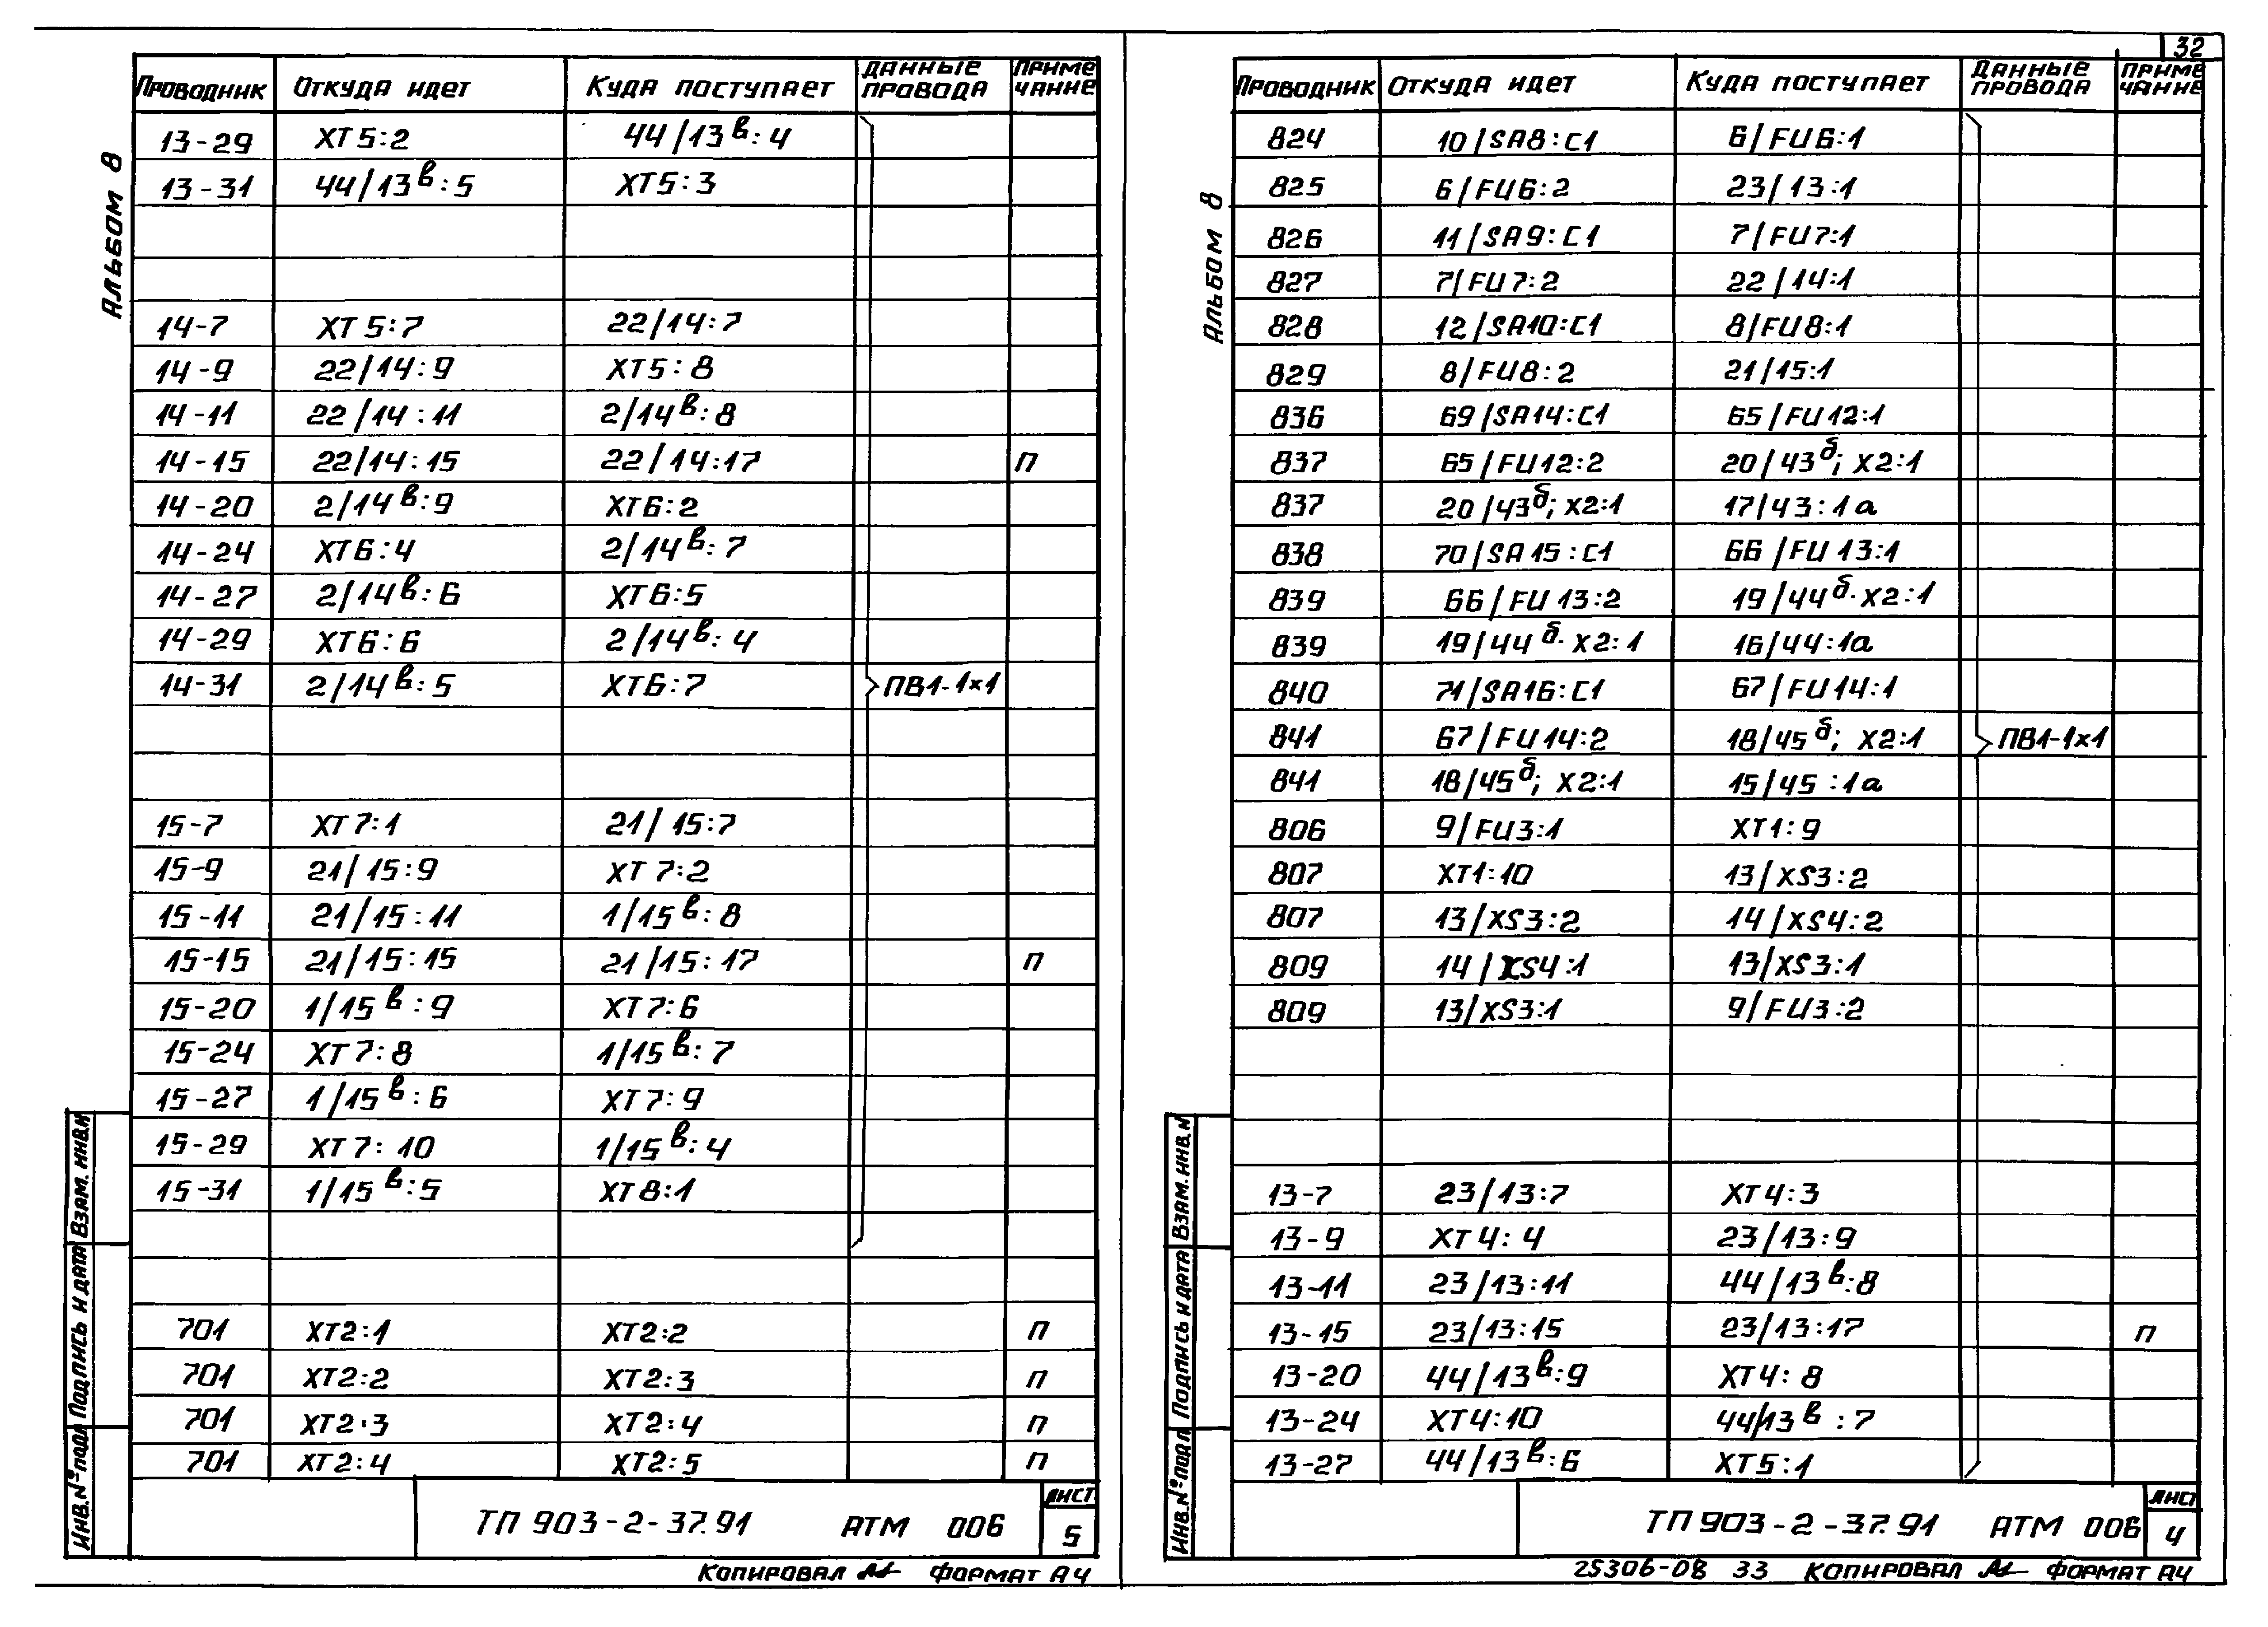 32
Альбом 8
Проводник Откуда идет Куда поступает Данные провода Приме чание
13-29 XT5:2 44/13в:4
13-31 44/13в:5 XT5:3
14-7 XT5:7 22/14:7
14-9 22/14:9 XT5:8
14-11 22/14:11 2/14в:8
14-15 22/14:15 22/14:17 п
14-20 2/14в:9 XT6:2
14-24 XT6:4 2/14в:7
14-27 2/14в:6 XT6:5
14-29 XT6:6 2/14в:4
14-31 2/14в:5 XT6:7 ПВ1-1×1
15-7 XT7:1 21/15:7
15-9 21/15:9 XT7:2
15-11 21/15:11 1/15в:8
15-15 21/15:15 21/15:17 п
15-20 1/15в:9 XT7:6
15-24 XT7:8 1/15в:7
15-27 1/15в:6 XT7:9
15-29 XT7:10 1/15в:4
15-31 1/15в:5 XT8:1
701 XT2:1 XT2:2 п
701 XT2:2 XT2:3 п
701 XT2:3 XT2:4 п
701 XT2:4 XT2:5 п
Инв.№подл Подпись и дата Взам. инв.н
ТП 903-2-37.91 АТМ 006 Лист 5
Копировал Формат А4
Альбом 8
Проводник Откуда идет Куда поступает Данные провода Приме чание
824 10/SA8:C1 6/FU6:1
825 6/FU6:2 23/13:1
826 11/SA9:C1 7/FU7:1
827 7/FU7:2 22/14:1
828 12/SA10:C1 8/FU8:1
829 8/FU8:2 21/15:1
836 69/SA14:C1 65/FU12:1
837 65/FU12:2 20/43б; X2:1
837 20/43б; X2:1 17/43:1а
838 70/SA15:C1 66/FU13:1
839 66/FU13:2 19/44б. X2:1
839 19/44б. X2:1 16/44:1а
840 71/SA16:C1 67/FU14:1
841 67/FU14:2 18/45б; X2:1 ПВ1-1×1
841 18/45б; X2:1 15/45:1а
806 9/FU3:1 XT1:9
807 XT1:10 13/XS3:2
807 13/XS3:2 14/XS4:2
809 14/XS4:1 13/XS3:1
809 13/XS3:1 9/FU3:2
13-7 23/13:7 XT4:3
13-9 XT4:4 23/13:9
13-11 23/13:11 44/13в:8
13-15 23/13:15 23/13:17 п
13-20 44/13в:9 XT4:8
13-24 XT4:10 44/13в:7
13-27 44/13в:6 XT5:1
Инв.№подл Подпись и дата Взам. инв.н
ТП 903-2-37.91 АТМ 006 Лист 4
25306-08 33 Копировал Формат А4